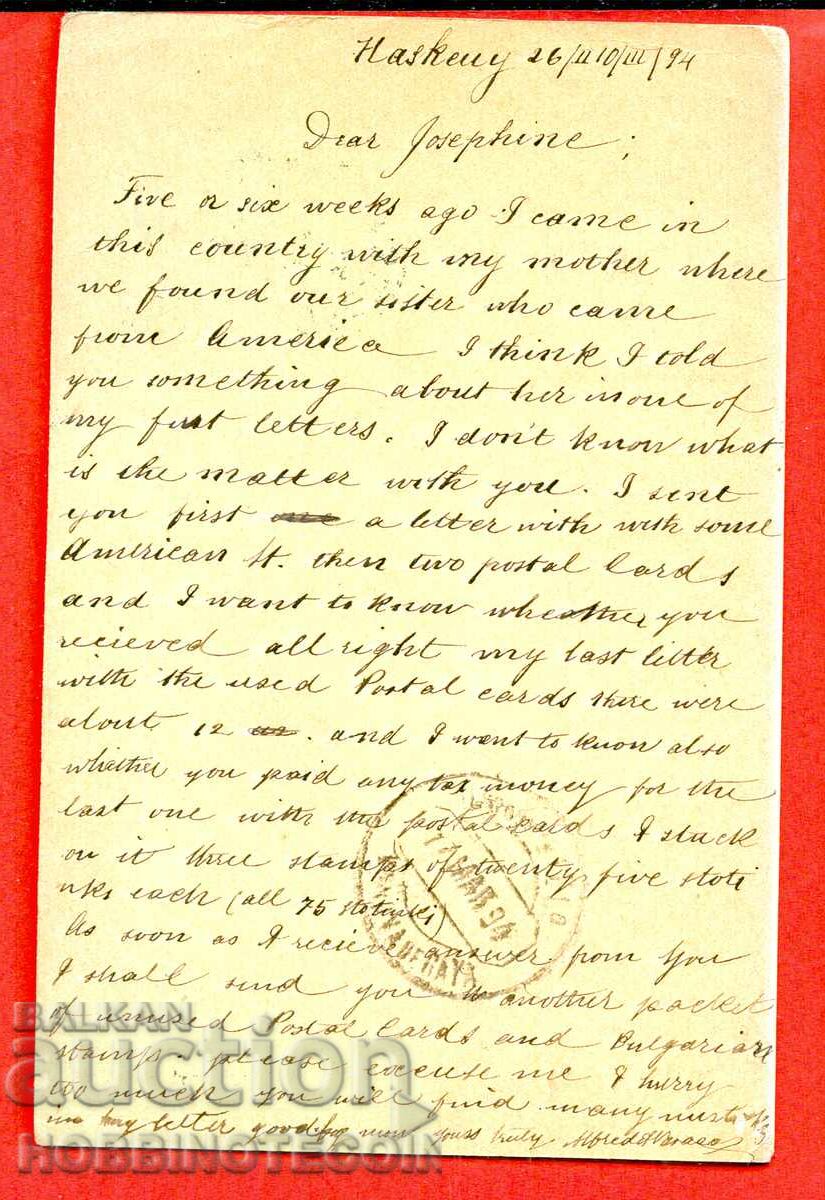 Haskeuy 26/II 10/III/94
Dear Josephine;
Five or six weeks ago I came in
this country with my mother where
we found our sister who came
from America I think I told
you something about her in one of
my first letters. I don't know what
is the matter with you. I sent
you first a letter with with some
American St. then two postal Cards
and I want to know whether you
recieved all right my last letter
with the used Postal cards there were
about 12 . and I want to know also
whether you paid any tax money for the
last one with the postal cards I stuck
on it three stamps of twenty five stoti
nks each (all 75 stotinki)
As soon as I recieve answer from You
I shall send you another packet
of unused Postal Cards and Bulgarian
stamps. please excuse me I hurry
too much you will find many
in my letter good by now yours truly Alfred
MAR 94
BALKAN
auction
HOBBINOTECOIN